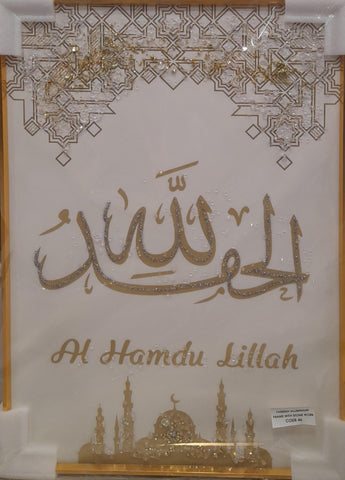 الحمد لله
Al Hamdu Lillah
FRAME WITH STONE WORK
CODE 46